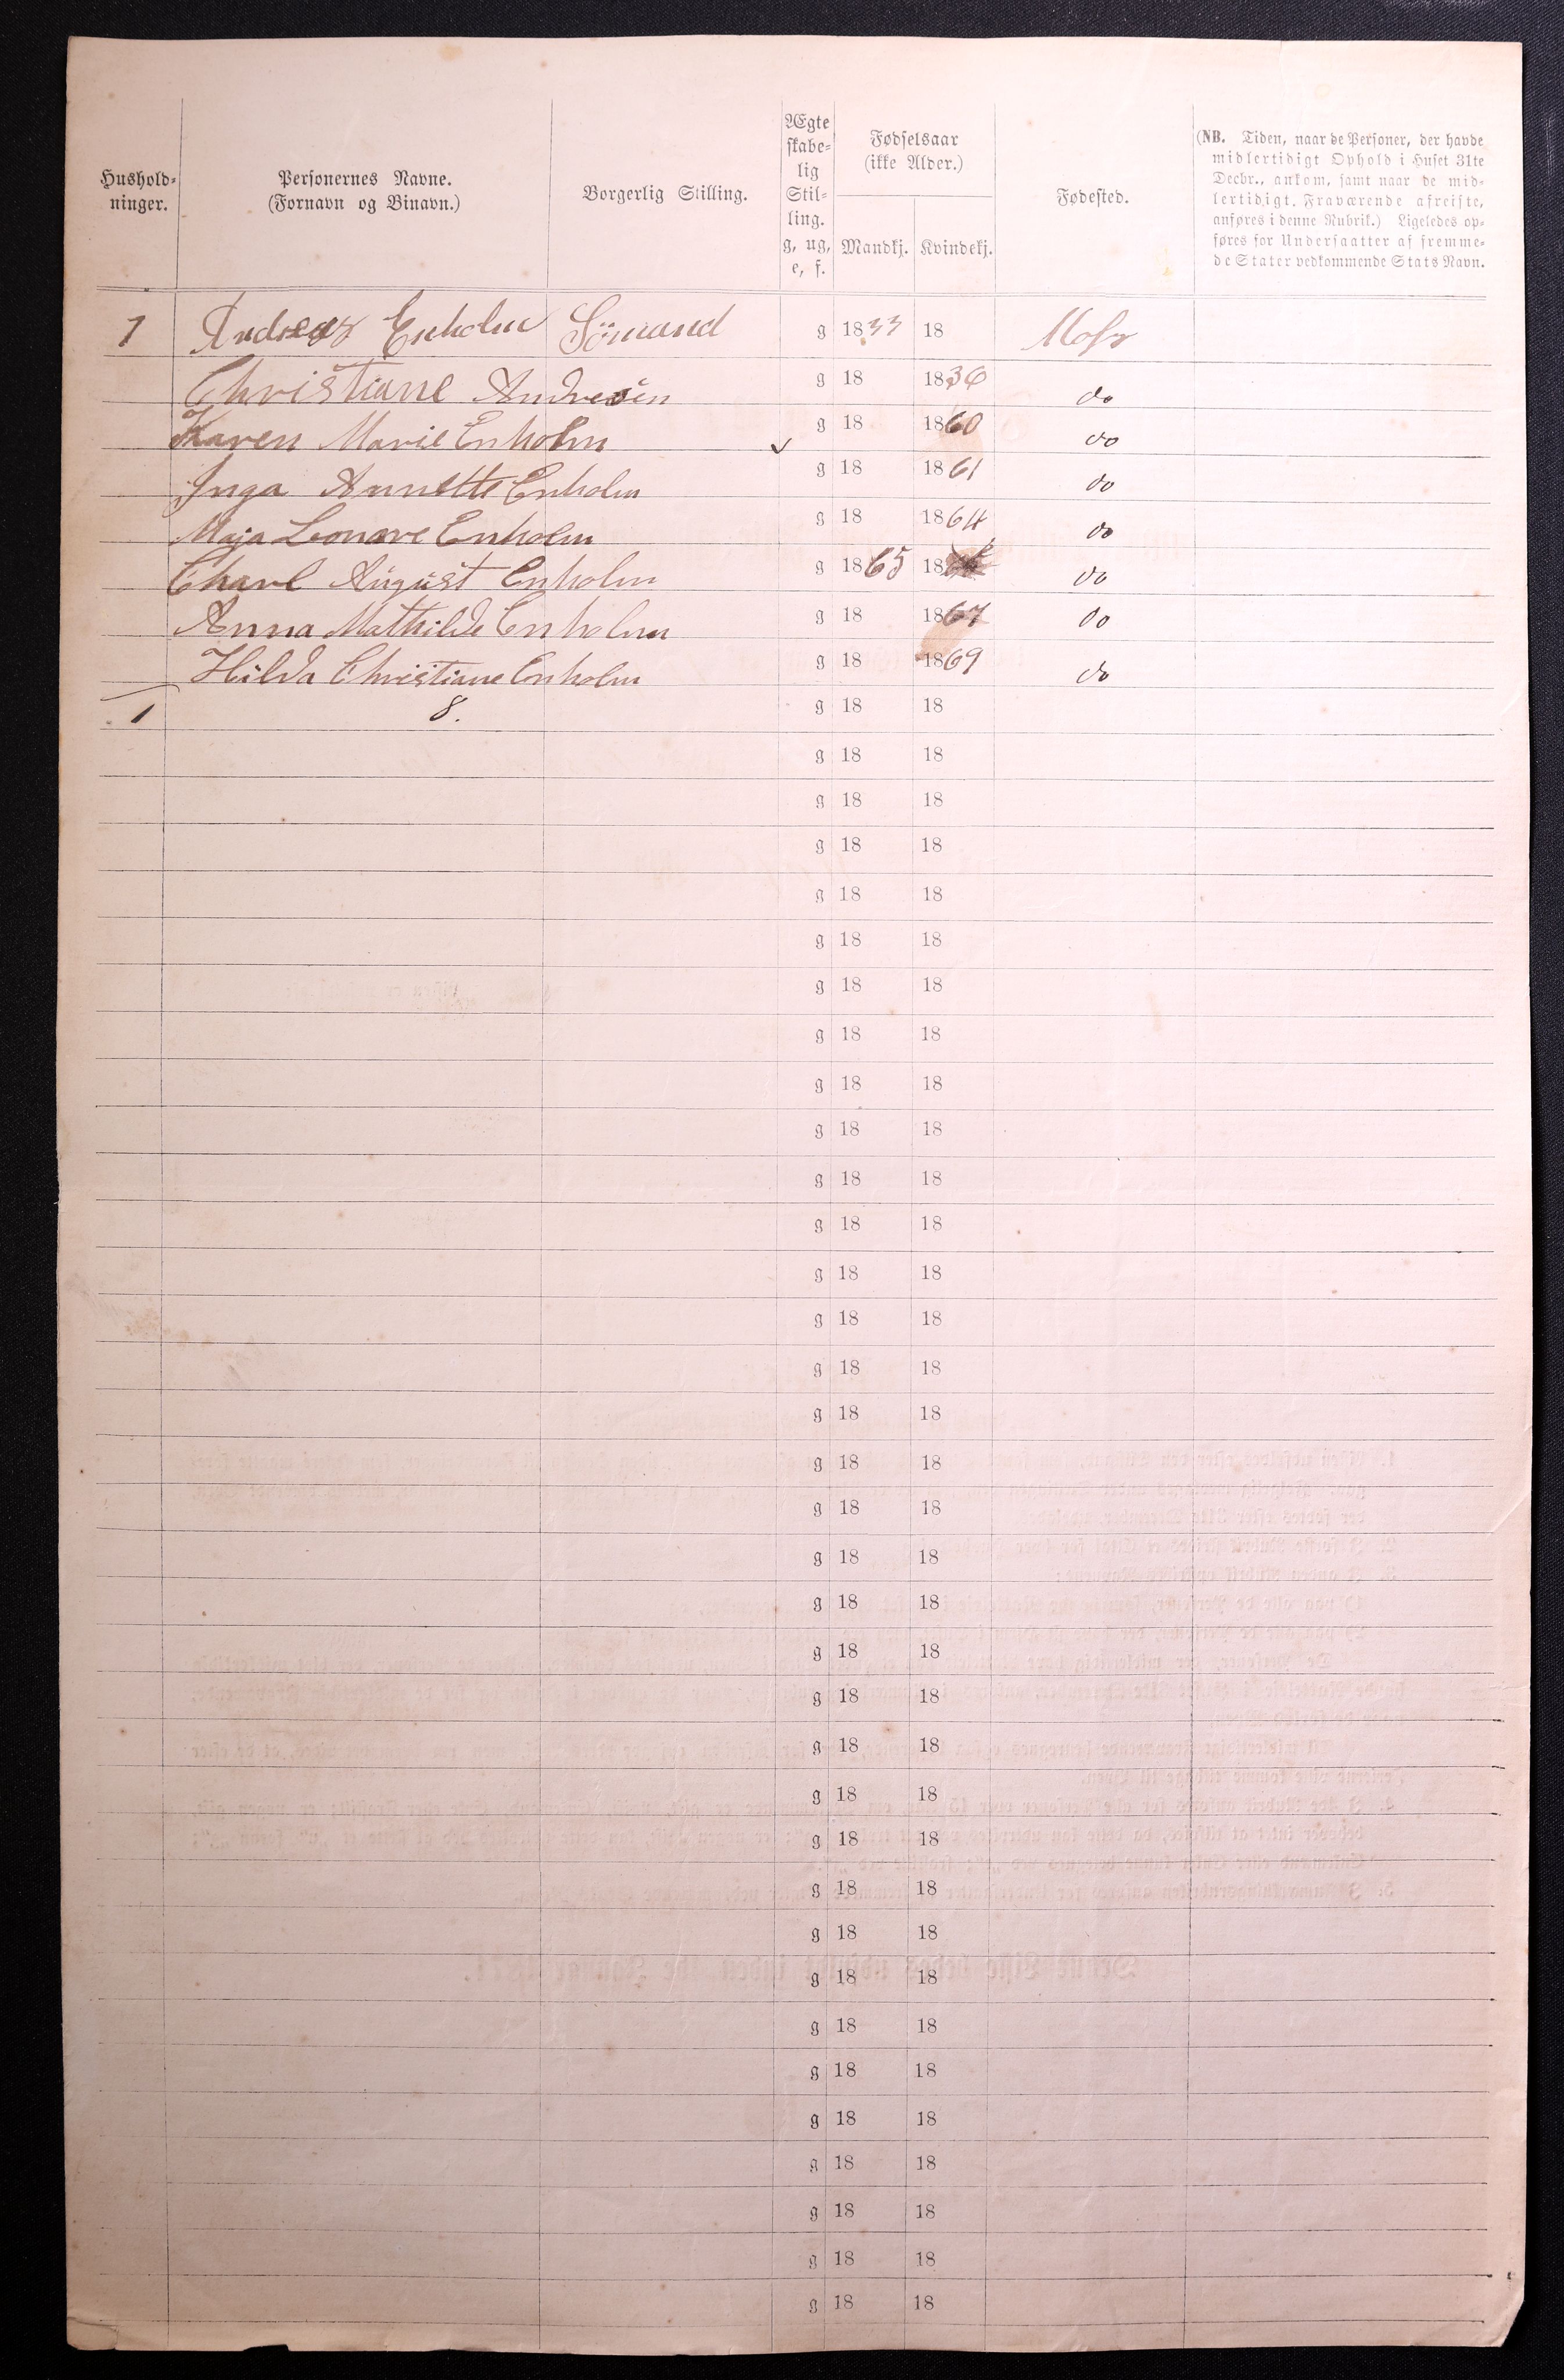 Hushold-
ninger.
Personernes Navne.
(Fornavn og Binavn.)
Borgerlig Stilling.
Ægte
skabe-
lig
Stil-
ling.
g, ug,
e, f.
Fødselsaar
(ikke Alder.)
Mandkj.
Kvindekj.
Fødested.
(NB. Tiden, naar de Personer, der havde
midlertidigt Ophold i Huset 31te
Decbr., ankom, samt naar de mid-
lertidigt Fraværende afreiste,
anføres i denne Rubrik.) Ligeledes op-
føres for Undersaatter af fremme-
de Stater vedkommende Stats Navn.
1 Andreas Enholm Sömand g 1833 18 Moss
Christiane Andresen g 18 1836 do
Karen Marie Enholm g 18 1860 do
Inga Annette Enholm g 18 1861 do
Maja Leonore Enholm g 18 1864 do
Charl August Enholm g 1865 18 do
Anna Mathilde Enholm g 18 1867 do
Hilda Christiane Enholm g 18 1869 do
1 8. g 18 18
g 18 18
g 18 18
g 18 18
g 18 18
g 18 18
g 18 18
g 18 18
g 18 18
g 18 18
g 18 18
g 18 18
g 18 18
g 18 18
g 18 18
g 18 18
g 18 18
g 18 18
g 18 18
g 18 18
g 18 18
g 18 18
g 18 18
g 18 18
g 18 18
g 18 18
g 18 18
g 18 18
g 18 18
g 18 18
g 18 18
g 18 18
g 18 18
g 18 18
g 18 18